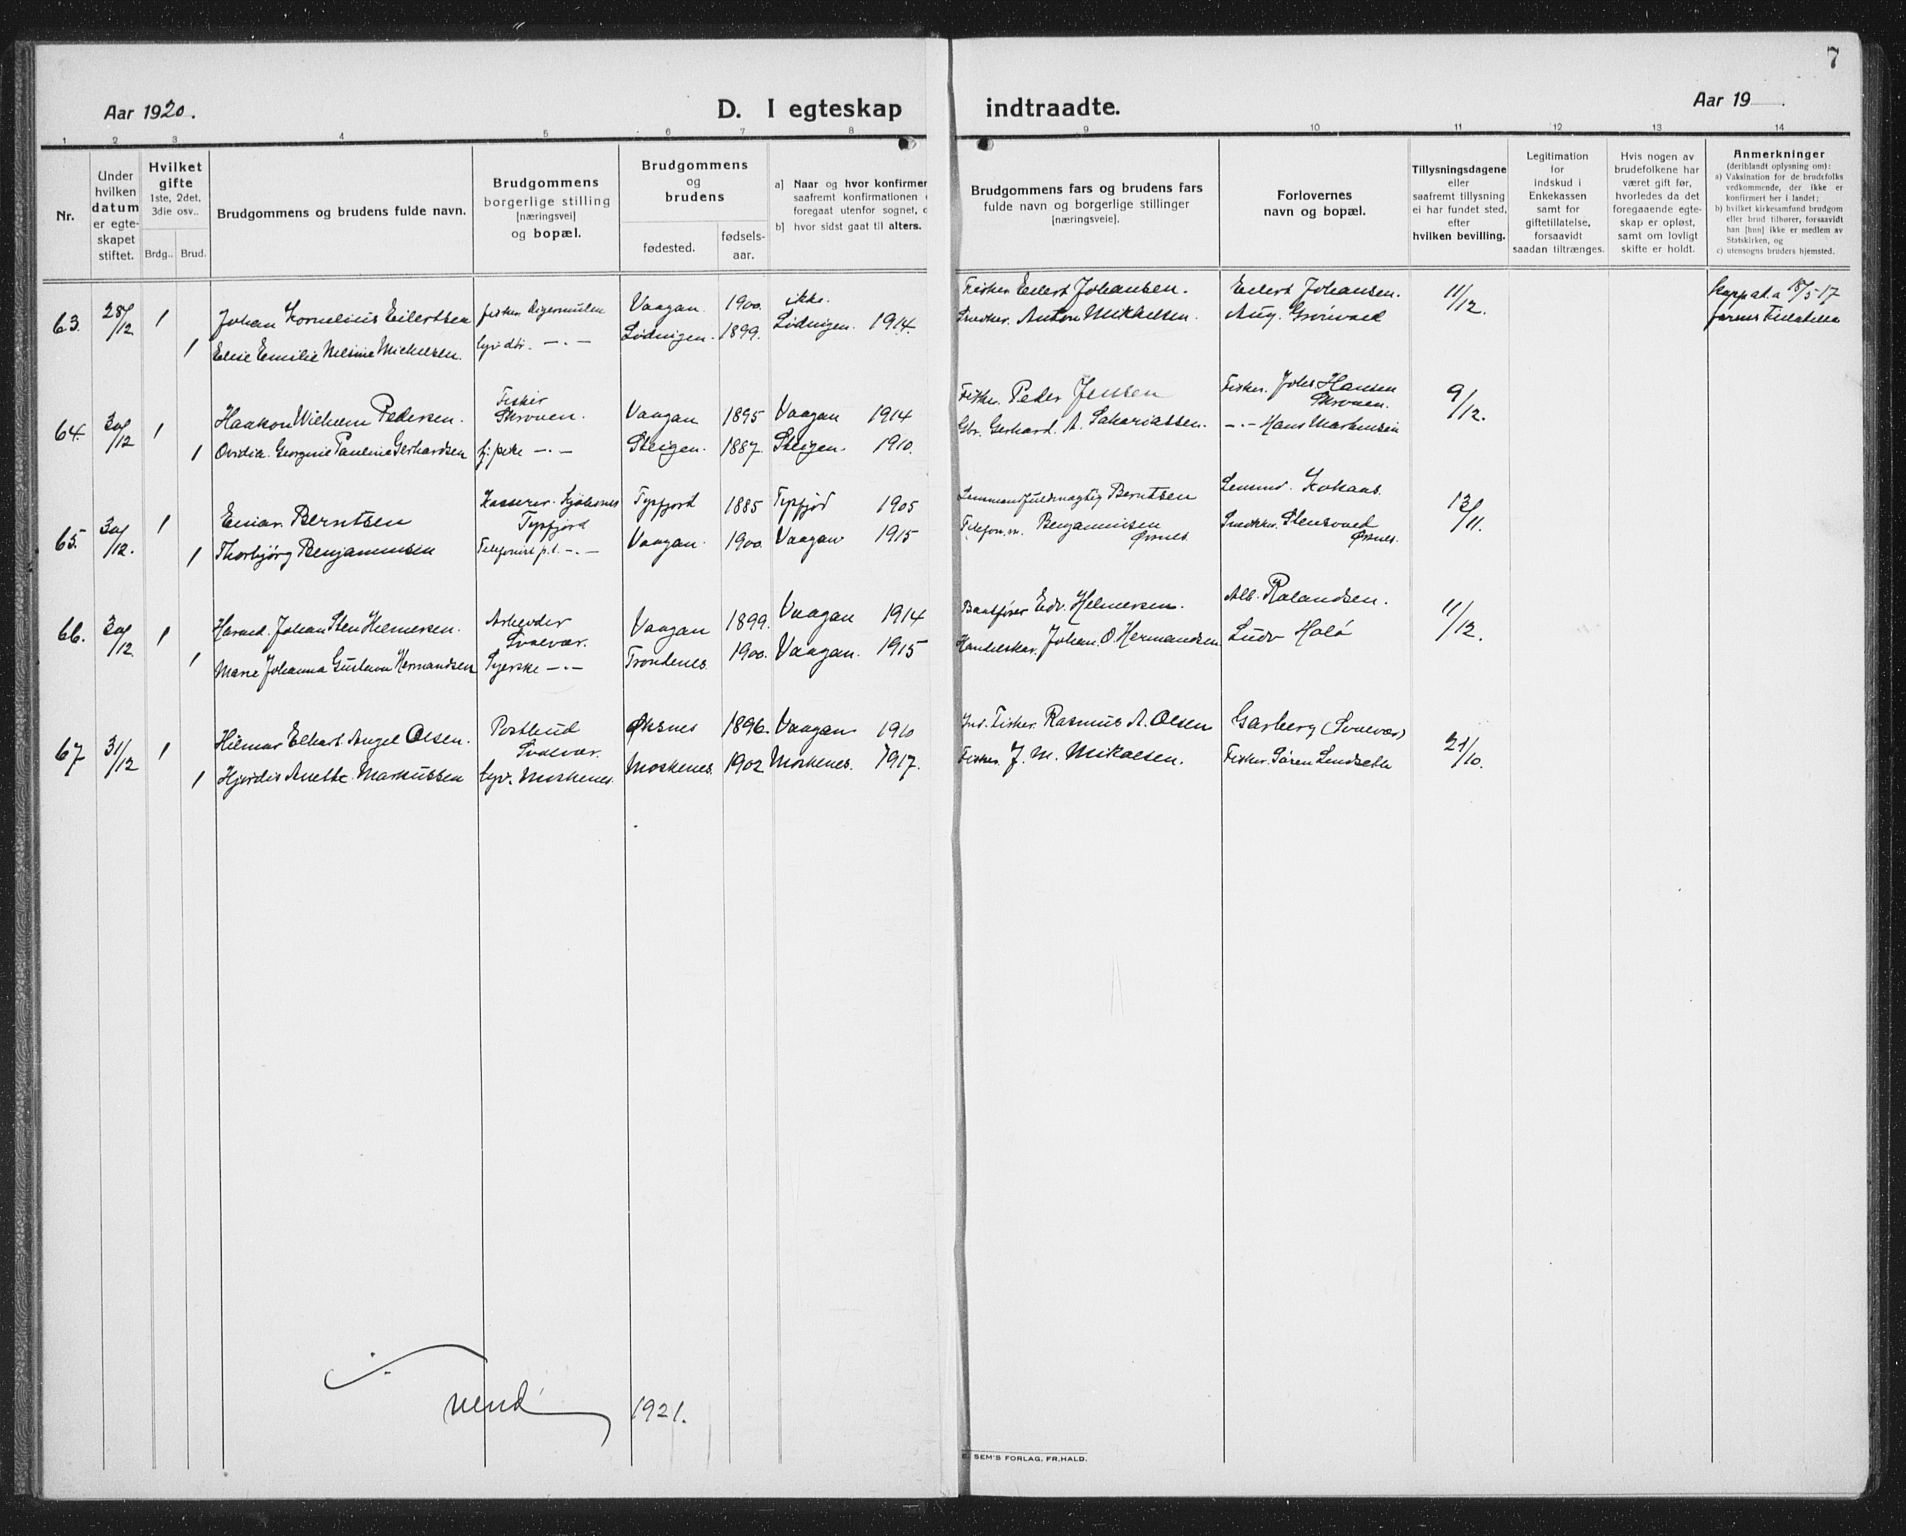 7
Aar 1920.
D. I egteskap indtraadte.
Aar 19
1 2 3 4 5 6 7 8 9 10 11 12 13 14
Nr.
Under hvilken datum er egte-skapet stiftet.
Hvilket gifte
1ste, 2det, 3die osv..
Brdg.. Brud.
Brudgommens og brudens fulde navn.
Brudgommens borgerlige stilling [næringsvei] og bopæl.
Brudgommens og brudens
fødested.
fødsels-aar.
a] Naar og hvor konfirmer
saafremt konfirmationen
foregaat utenfor sognet,
b] hvor sidst gaat til alters.
Brudgommens fars og brudens fars
fulde navn og borgerlige stillinger
[næringsveie].
Forlovernes
navn og bopæl.
Tillysningsdagene
eller
saafremt tillysning
ei har fundet sted,
efter
hvilken bevilling.
Legitimation
for
indskud i
Enkekassen
samt for
giftetillatelse,
forsaavidt
saadan tiltrænges.
Hvis nogen av
brudefolkene har
været gift før,
hvorledes da det
foregaaende egte-
skap er opløst,
samt om lovligt
skifte er holdt.
Anmerkninger
(deriblandt oplysning om):
a) Vaksination for de brudefolks
vedkommende, der ikke er
konfirmert her i landet;
b) hvilket kirkesamfund brudgom
eller brud tilhører, forsaavidt
han [hun] ikke er medlem av
Statskirken, og
c) utensogns bruders hjemsted.
63. 28/12 1 Johan Kornelius Eilertsen fisker Digermulen Vaagan 1900. ikke. Fisker Eilert Johansen. Eilert Johansen. 11/12. 18/5 17
1 Elise Emilie Nelsine Michelsen. Lødingen. 1899. Lødingen. 1914. Snedker. Anton Mikkelsen. Aug. Grønvold
64. 30/12 1 Haakon Wilhelm Pedersen. Fisker Skroven. Vaagan 1895 Vaagan 1914 Fisker. Peder Jensen Fisker. Johs. Hansen Skroven. 9/12.
1 Ovidia Georgine Pauline Gerhardsen Steigen. 1887. Steigen. 1910. Gbr. Gerhard. A. Sakariassen. -"- Hans Martinsen
65. 30/12. 1 Einar Berntsen Kasserer Tysfjord Tysfjord 1885 Tysfjord 1905 Lensmandsfuldmægtig Berntsen Lensmd. 13/11.
1 Thorbjørg Benjaminsen Telefonist p.t. -"- Vaagan. 1900. Vaagan 1915 Telefon.m. Benjaminsen Ørsnes. Snedker. Stensvold Ørsnes.
66. 30/12 1 Harald. Johan Sten Hilmersen. Arbeider Svolvær. Vaagan 1899. Vaagan 1914 Baatfører Edv. Helmersen. Alb. Rolandsen. 11/12.
1 Marie Johanna Gustava Hermandsen Syerske -"- Trondenes 1900. Vaagan. 1915 Handelskar. Johan. O. Hermandsen Ludv Holø
67 31/12 1 Hilmar Elhart Angel Olsen. Postbud Svolvær. Øksnes 1896. Vaagan 1910 Ind. Fisker. Rasmus A. Olsen Garberg (Svolvær) 21/10.
1 Hjørdis Anette Markussen Moskenes. Moskenes. 1902 Moskenes. 1917. Fisker. J. M. Mikalsen. Fisker Søren Lindseth
vend 1921.
E. SEM'S FORLAG, FR.HALD.